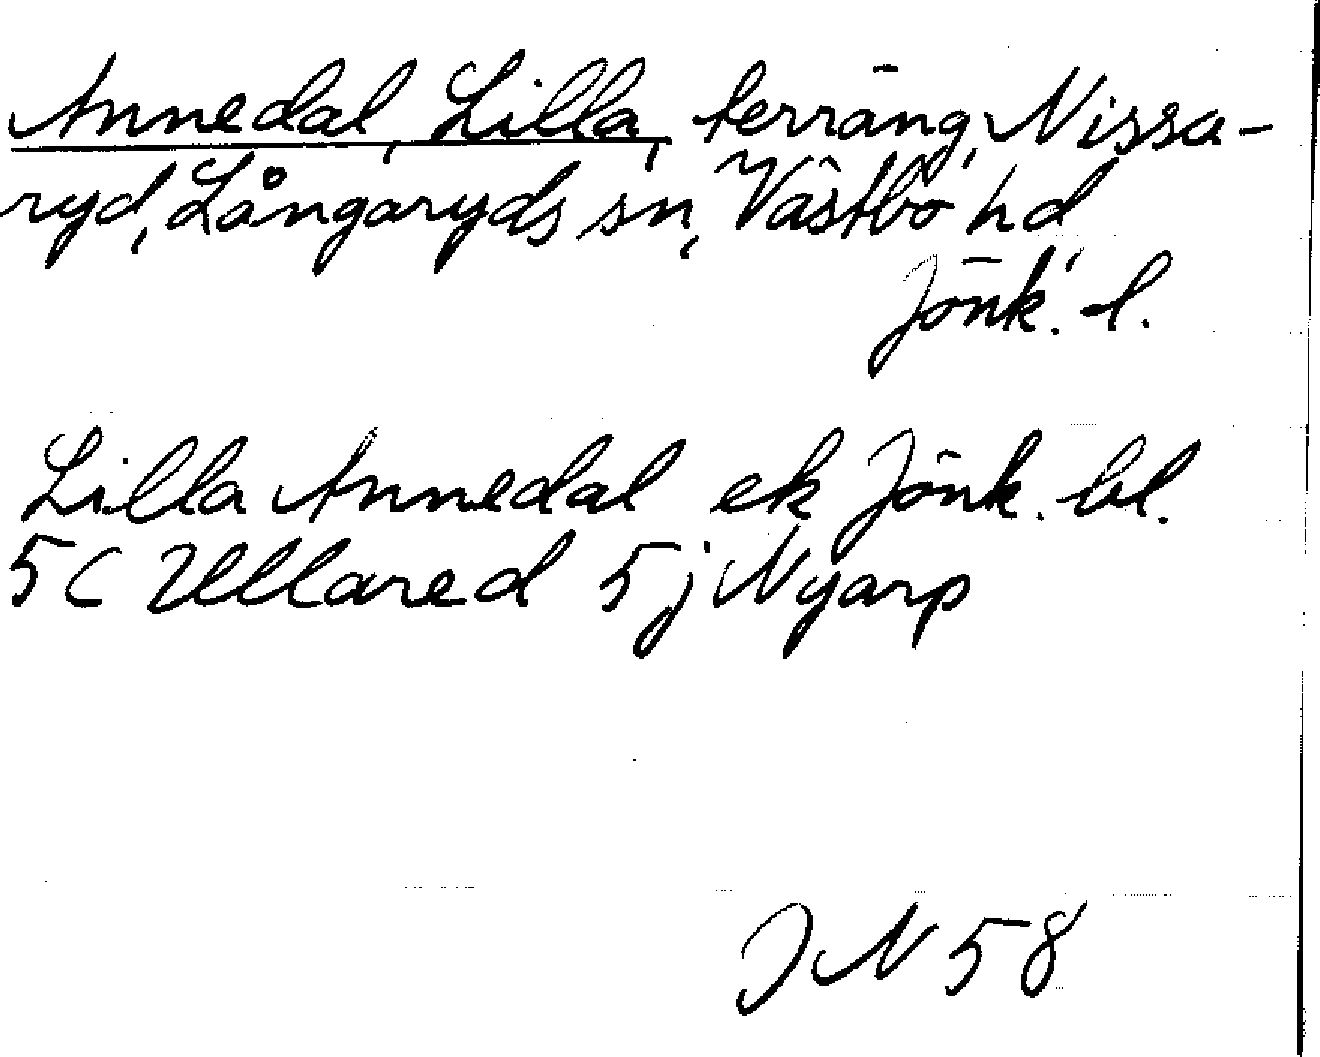 Annedal, Lilla, terräng, Nissa-
ryd, Långaryds sn, Västbo hd,
Jönk. l.
Lilla Annedal ek Jönk. bl.
5C Ullared 5j Nyarp
JN 58